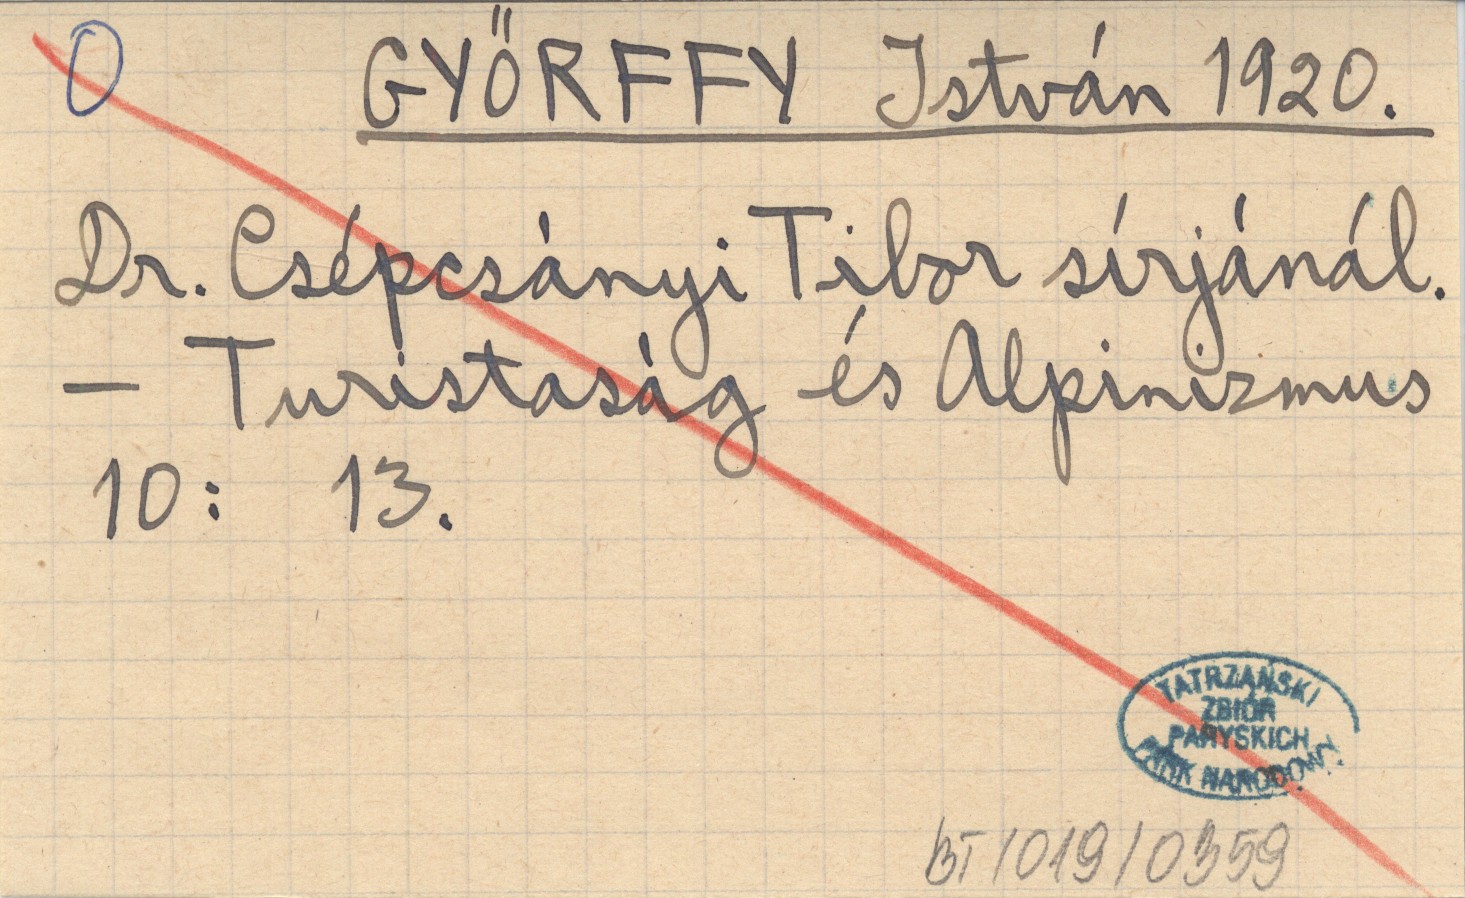 0 GYŐRFFY István 1920.
Dr. Csépcsányi Tibor sírjánál.
— Turistaság és Alpinizmus
10: 13.
TATRZAŃSKI
ZBIÓR
PARYSKICH
PARK NARODOWY
BT/019/0359